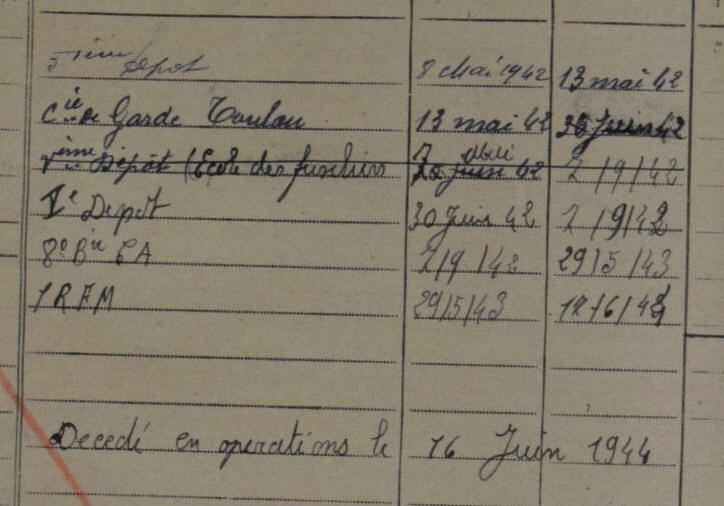 5ième Dépot 8 Mai 1942 13 mai 42
Cie de Garde Toulon 13 mai 42 30 Juin 42
Dépôt (Ecole des fusiliers 42 2/9/42
Ie Depot 30 Juin 42 2/9/42
8e Bie CA 2/9/42 29/5/43
1 RFM 29/5/43 12/6/44
Decedé en operations le 16 Juin 1944